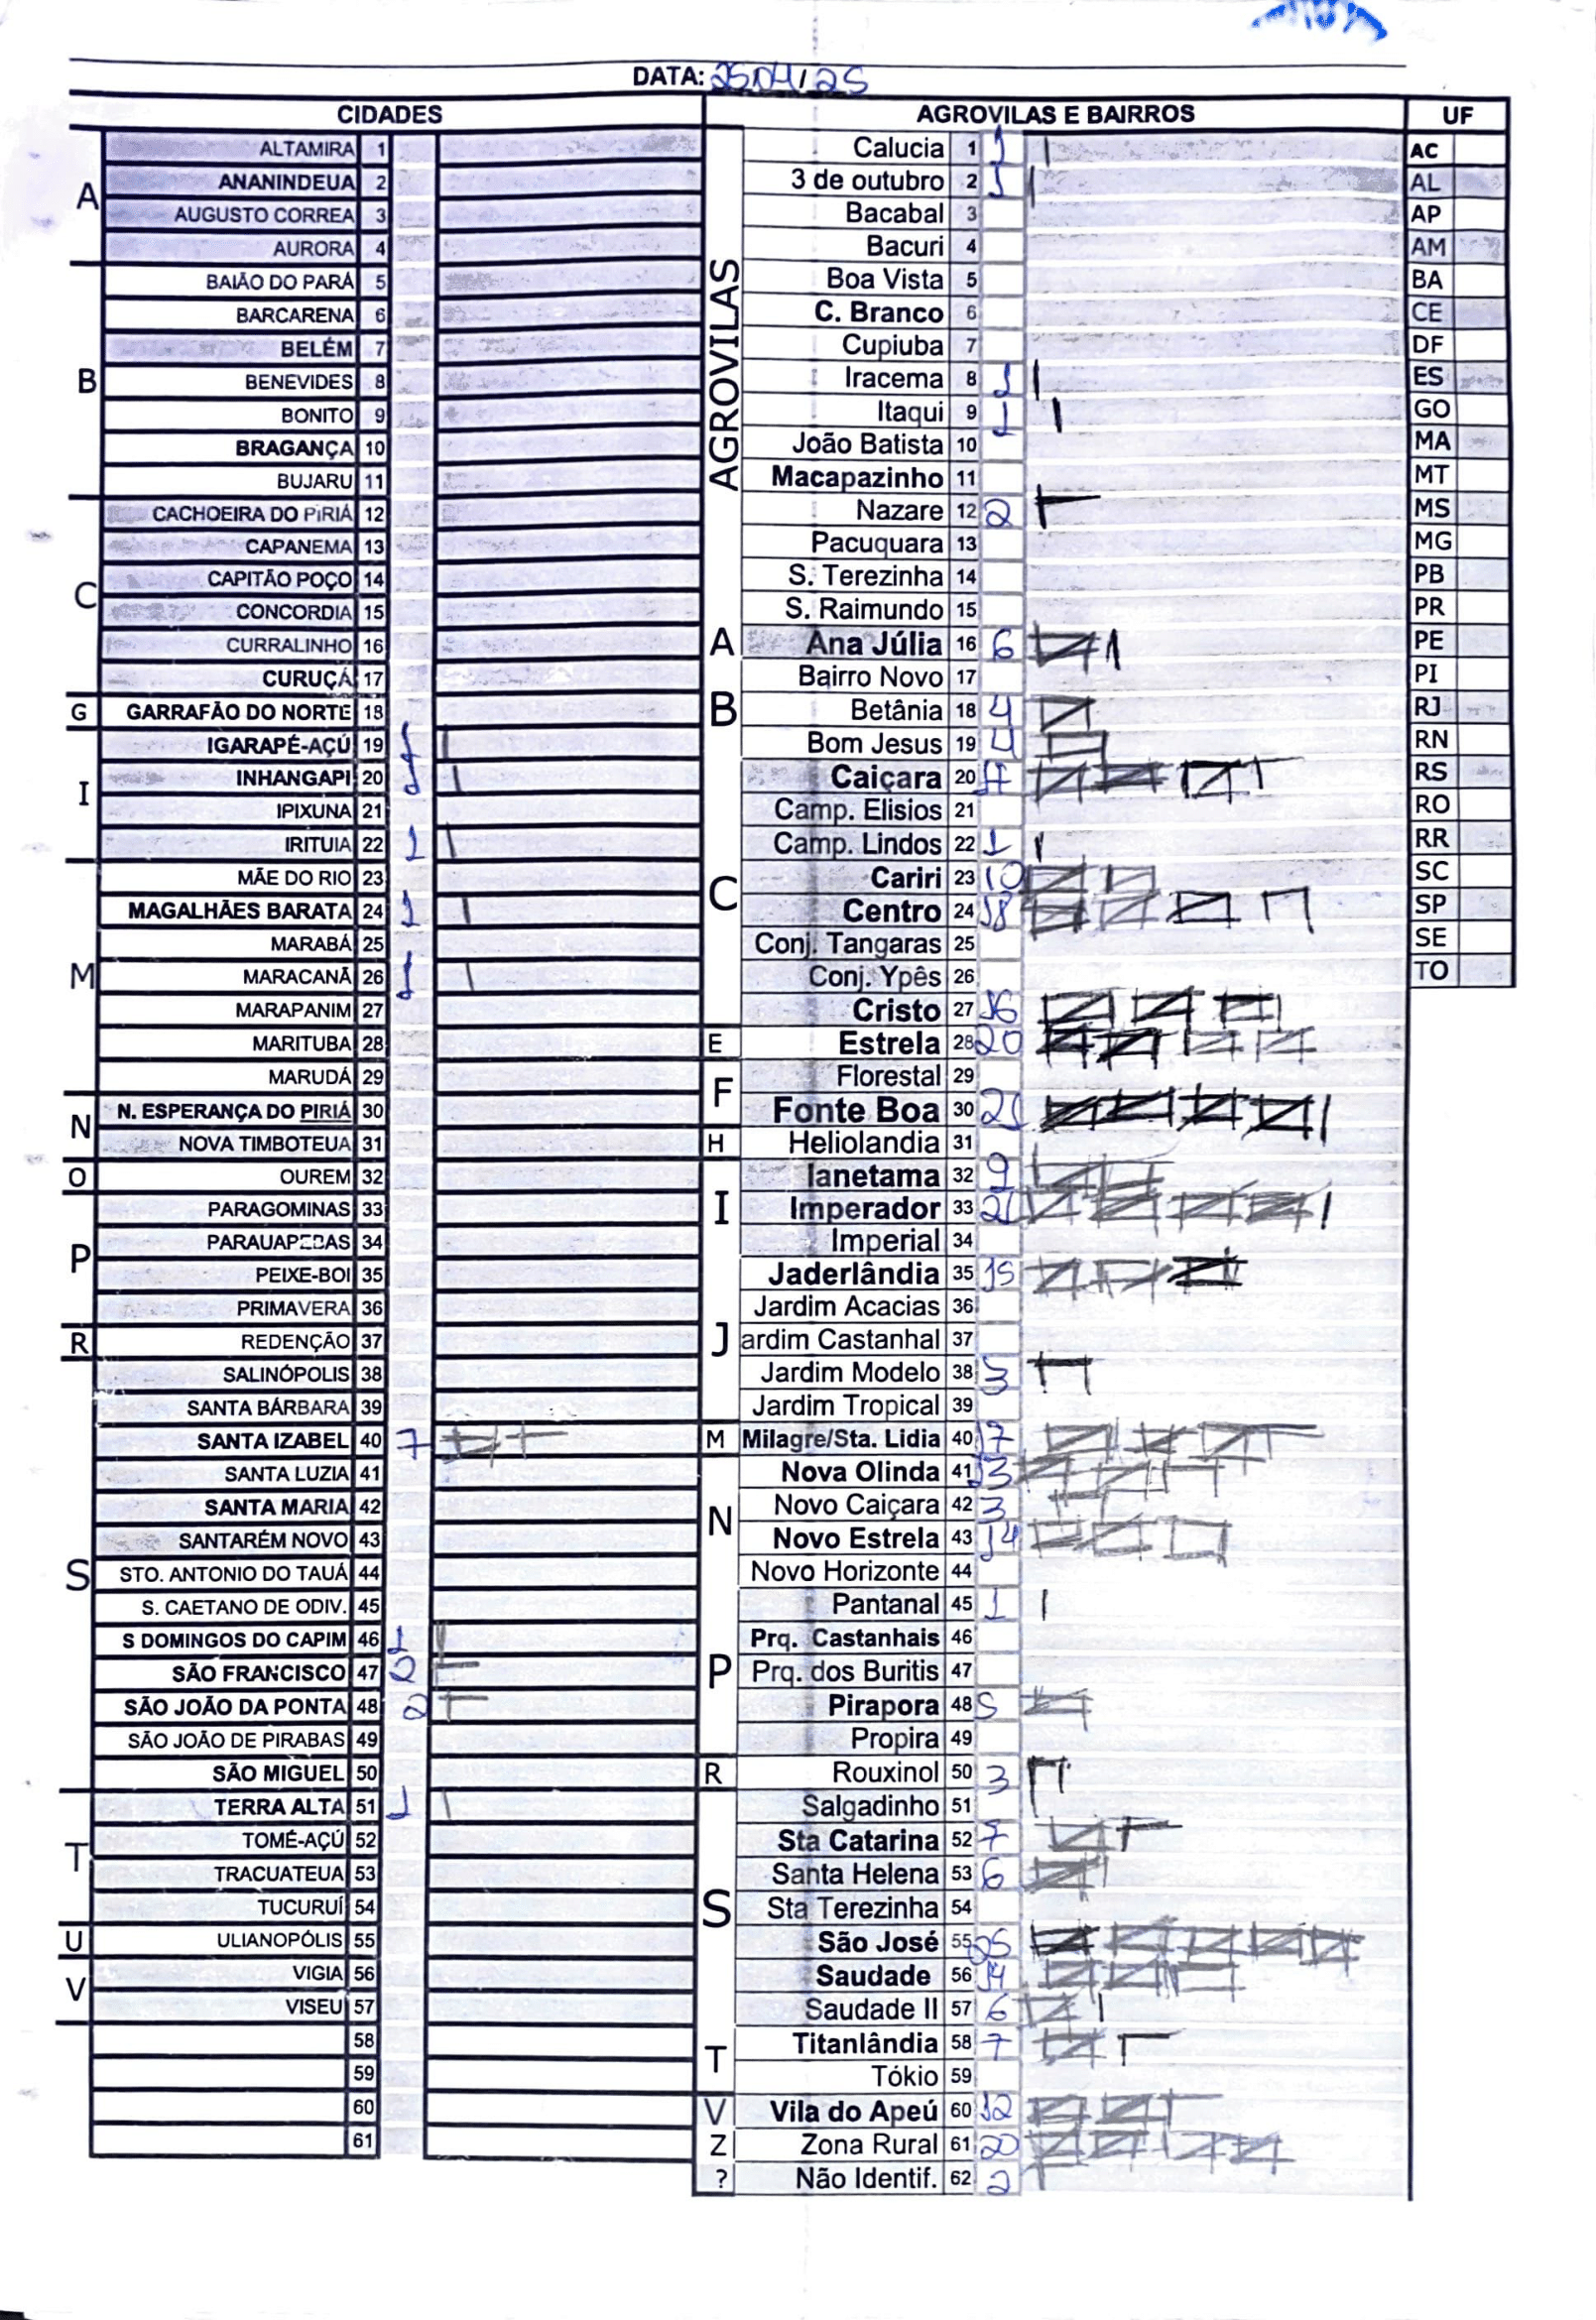 DATA: 25/04/25
CIDADES
A
ALTAMIRA 1
ANANINDEUA 2
AUGUSTO CORREA 3
AURORA 4
B
BAIÃO DO PARÁ 5
BARCARENA 6
BELÉM 7
BENEVIDES 8
BONITO 9
BRAGANÇA 10
BUJARU 11
C
CACHOEIRA DO PIRIÁ 12
CAPANEMA 13
CAPITÃO POÇO 14
CONCORDIA 15
CURRALINHO 16
CURUÇÁ 17
G
GARRAFÃO DO NORTE 18
I
IGARAPÉ-AÇÚ 19 1
INHANGAPI 20 1
IPIXUNA 21
IRITUIA 22 1
M
MÃE DO RIO 23
MAGALHÃES BARATA 24 1
MARABÁ 25
MARACANÃ 26 1
MARAPANIM 27
MARITUBA 28
MARUDÁ 29
N
N. ESPERANÇA DO PIRIÁ 30
NOVA TIMBOTEUA 31
O
OUREM 32
P
PARAGOMINAS 33
PARAUAPEBAS 34
PEIXE-BOI 35
PRIMAVERA 36
R
REDENÇÃO 37
S
SALINÓPOLIS 38
SANTA BÁRBARA 39
SANTA IZABEL 40 7
SANTA LUZIA 41
SANTA MARIA 42
SANTARÉM NOVO 43
STO. ANTONIO DO TAUÁ 44
S. CAETANO DE ODIV. 45
S DOMINGOS DO CAPIM 46 1
SÃO FRANCISCO 47 2
SÃO JOÃO DA PONTA 48 2
SÃO JOÃO DE PIRABAS 49
SÃO MIGUEL 50
T
TERRA ALTA 51 1
TOMÉ-AÇÚ 52
TRACUATEUA 53
TUCURUÍ 54
U
ULIANOPÓLIS 55
V
VIGIA 56
VISEU 57
58
59
60
61
AGROVILAS E BAIRROS
AGROVILAS
Calucia 1 1
3 de outubro 2 1
Bacabal 3
Bacuri 4
Boa Vista 5
C. Branco 6
Cupiuba 7
Iracema 8 1
Itaqui 9 1
João Batista 10
Macapazinho 11
Nazare 12 2
Pacuquara 13
S. Terezinha 14
S. Raimundo 15
A
Ana Júlia 16 6
B
Bairro Novo 17
Betânia 18 4
Bom Jesus 19 4
C
Caiçara 20 17
Camp. Elisios 21
Camp. Lindos 22 1
Cariri 23 10
Centro 24 18
Conj. Tangaras 25
Conj. Ypês 26
Cristo 27 16
E
Estrela 28 20
F
Florestal 29
Fonte Boa 30 21
H
Heliolandia 31
I
Ianetama 32 9
Imperador 33 21
Imperial 34
J
Jaderlândia 35 15
Jardim Acacias 36
ardim Castanhal 37
Jardim Modelo 38 3
Jardim Tropical 39
M
Milagre/Sta. Lidia 40 17
N
Nova Olinda 41 13
Novo Caiçara 42 3
Novo Estrela 43 14
Novo Horizonte 44
P
Pantanal 45 1
Prq. Castanhais 46
Prq. dos Buritis 47
Pirapora 48 5
Propira 49
R
Rouxinol 50 3
S
Salgadinho 51
Sta Catarina 52 7
Santa Helena 53 6
Sta Terezinha 54
São José 55 25
Saudade 56 14
Saudade II 57 6
T
Titanlândia 58 7
Tókio 59
V
Vila do Apeú 60 12
Z
Zona Rural 61 20
?
Não Identif. 62 2
UF
AC
AL
AP
AM
BA
CE
DF
ES
GO
MA
MT
MS
MG
PB
PR
PE
PI
RJ
RN
RS
RO
RR
SC
SP
SE
TO